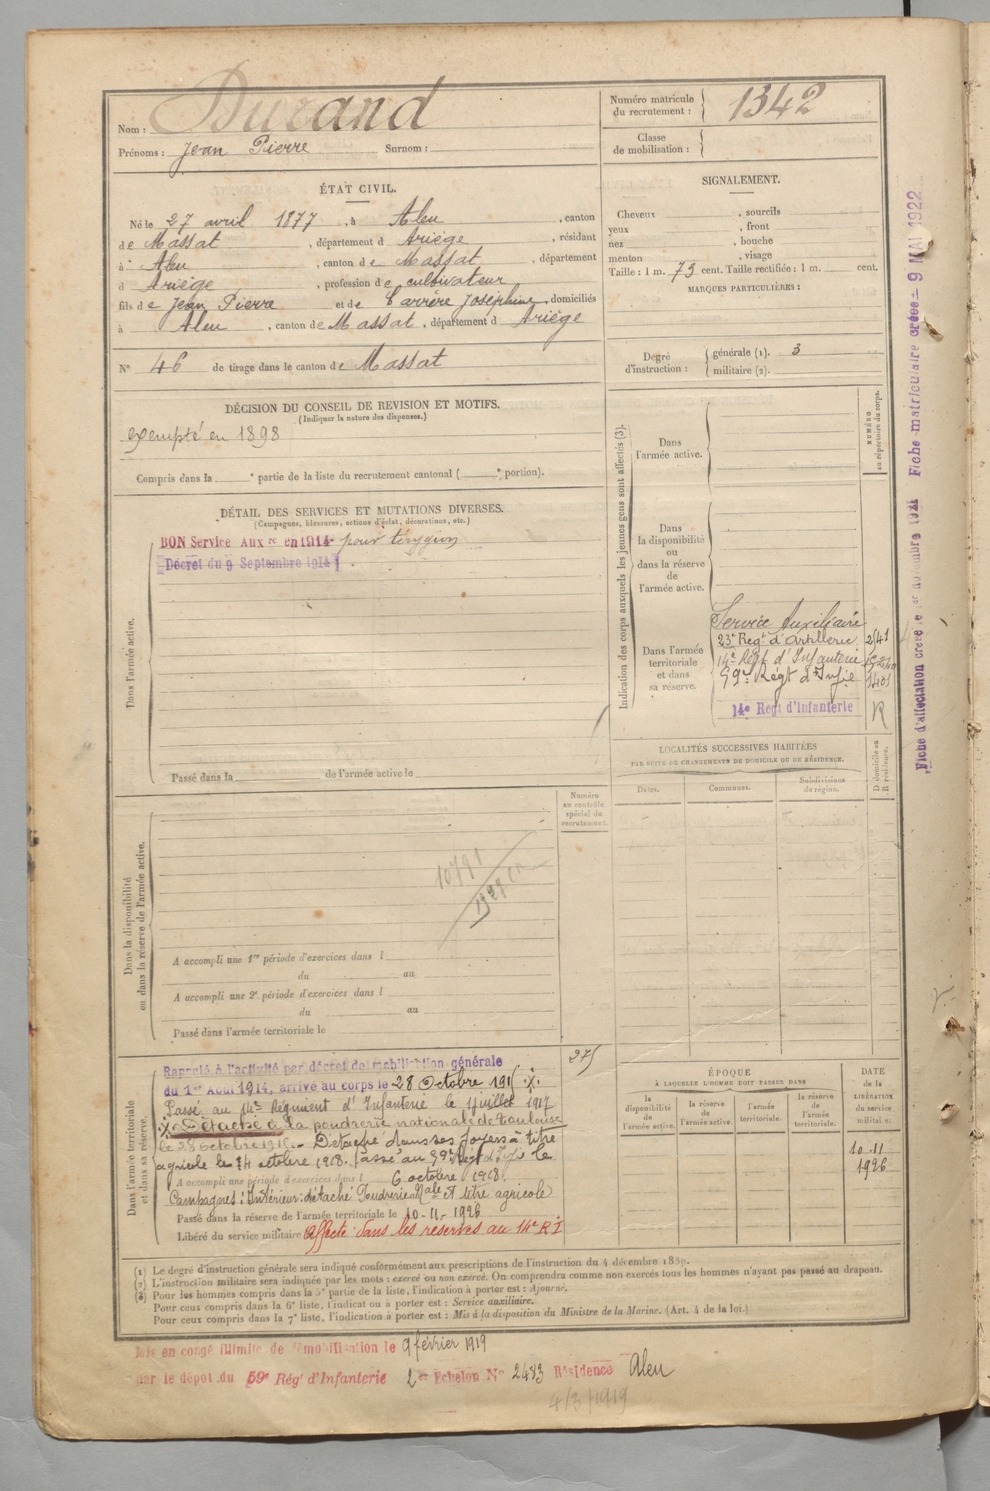 Nom : Durand
Prénoms : Jean Pierre Surnom :
Numéro matricule du recrutement : 1342
Classe de mobilisation :
ÉTAT CIVIL.
Né le 27 avril 1877, à Aleu, canton
de Massat, département d Ariège, résidant
à Aleu, canton de Massat, département
d Ariège, profession de cultivateur
fils de Jean Pierre et de Carrère Joséphine, domiciliés
à Aleu, canton de Massat, département d Ariège
N° 46 de tirage dans le canton de Massat
SIGNALEMENT.
Cheveux , sourcils
yeux , front
nez , bouche
menton , visage
Taille : 1 m. 73 cent. Taille rectifiée : 1 m. cent.
MARQUES PARTICULIÈRES :
Degré d'instruction : générale (1). 3
militaire (2).
DÉCISION DU CONSEIL DE REVISION ET MOTIFS.
(Indiquer la nature des dispenses.)
exempté en 1898
Compris dans la e partie de la liste du recrutement cantonal ( e portion).
DÉTAIL DES SERVICES ET MUTATIONS DIVERSES.
(Campagnes, blessures, actions d'éclat, décorations, etc.)
BON Service Auxre en 1914 pour
Décret du 9 Septembre 1914
Dans l'armée active.
Passé dans la de l'armée active le
Indication des corps auxquels les jeunes gens sont affectés (3).
NUMÉRO au répertoire du corps.
Dans l'armée active.
Dans la disponibilité ou dans la réserve de l'armée active.
Dans l'armée territoriale et dans sa réserve.
Service Auxiliaire
23e Regt d'Artillerie
14e Régt d'Infanterie
59e Régt d'Infie
14e Regt d'Infanterie R
Fiche d'affectation créée le 1er novembre 1921 Fiche matriculaire créée = 9 MAI 1922
LOCALITÉS SUCCESSIVES HABITÉES
PAR SUITE DE CHANGEMENTS DE DOMICILE OU DE RÉSIDENCE.
Dates. Communes. Subdivisions de région. D domicile ou R résidence.
Numéro au contrôle spécial du recrutement.
Dans la disponibilité ou dans la réserve de l'armée active.
A accompli une 1re période d'exercices dans l
du au
A accompli une 2e période d'exercices dans l
du au
Passé dans l'armée territoriale le
Dans l'armée territoriale et dans sa réserve.
Rappelé à l'activité par décret de mobilisation générale
du 1er Août 1914, arrivé au corps le 28 Octobre
Passé au 14e Régiment d'Infanterie le 1 juillet 1917
Détaché à la poudrerie nationale de Toulouse
le 28 octobre Détaché dans ses foyers à titre
agricole le 14 octobre 1918. Passé au 59e Régt d'Infie le
A accompli une période d'exercices dans l 6 octobre 1918.
Campagnes : Intérieur : détaché Poudrerie Nale et titre agricole
Passé dans la réserve de l'armée territoriale le 10-11-1926
Libéré du service militaire Affecté dans les réserves au 14e R I
ÉPOQUE
À LAQUELLE L'HOMME DOIT PASSER DANS
la disponibilité de l'armée active. la réserve de l'armée active. l'armée territoriale. la réserve de l'armée territoriale.
DATE de la LIBÉRATION du service militaire.
10-11
1926
(1) Le degré d'instruction générale sera indiqué conformément aux prescriptions de l'instruction du 4 décembre 1889.
(2) L'instruction militaire sera indiquée par les mots : exercé ou non exercé. On comprendra comme non exercés tous les hommes n'ayant pas passé au drapeau.
(3) Pour les hommes compris dans la 5e partie de la liste, l'indication à porter est : Ajourné.
Pour ceux compris dans la 6e liste, l'indication à porter est : Service auxiliaire.
Pour ceux compris dans la 7e liste, l'indication à porter est : Mis à la disposition du Ministre de la Marine. (Art. 4 de la loi.)
Mis en congé illimité de démobilisation le 9 février 1919
par le dépôt du 59e Régt d'Infanterie 2er Echelon N° 2483 Résidence Aleu
4/3/1919